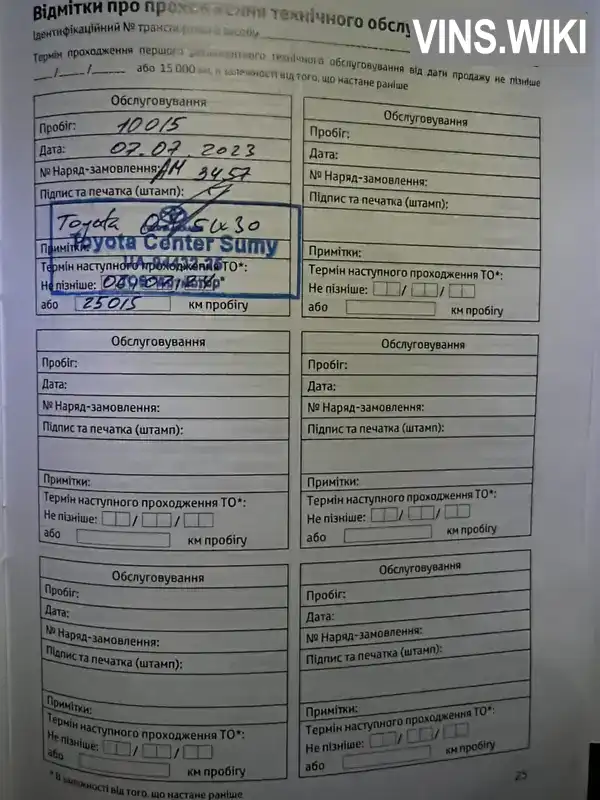 Відмітки про проходження технічного обслу
VINS.WIKI
Ідентифікаційний № транспортного засобу
Термін проходження першого регламентного технічного обслуговування від дати продажу не пізніше
__/__/____ або 15 000 км, в залежності від того, що настане раніше
Обслуговування
Пробіг: 10015
Дата: 07.07.2023
№ Наряд-замовлення: АМ 3457
Підпис та печатка (штамп):
Toyota 5W30
Toyota Center Sumy
Примітки:
Термін наступного проходження ТО*:
Не пізніше:
або 25015 км пробігу
Обслуговування
Пробіг:
Дата:
№ Наряд-замовлення:
Підпис та печатка (штамп):
Примітки:
Термін наступного проходження ТО*:
Не пізніше: / /
або км пробігу
Обслуговування
Пробіг:
Дата:
№ Наряд-замовлення:
Підпис та печатка (штамп):
Примітки:
Термін наступного проходження ТО*:
Не пізніше: / /
або км пробігу
Обслуговування
Пробіг:
Дата:
№ Наряд-замовлення:
Підпис та печатка (штамп):
Примітки:
Термін наступного проходження ТО*:
Не пізніше: / /
або км пробігу
Обслуговування
Пробіг:
Дата:
№ Наряд-замовлення:
Підпис та печатка (штамп):
Примітки:
Термін наступного проходження ТО*:
Не пізніше: / /
або км пробігу
Обслуговування
Пробіг:
Дата:
№ Наряд-замовлення:
Підпис та печатка (штамп):
Примітки:
Термін наступного проходження ТО*:
Не пізніше: / /
або км пробігу
* В залежності від того, що настане раніше
25